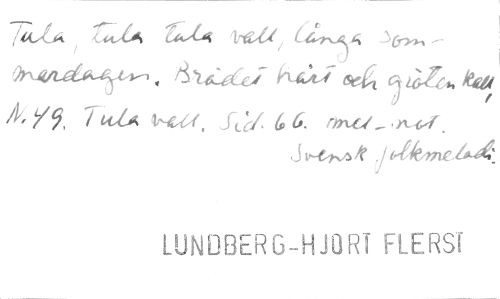 Tula, tula tula vall, långa som-
mardagen. Brödet hårt och gröten kall,
N. 49. Tula vall. Sid. 66. mel-not.
Svensk folkmelodi.
LUNDBERG-HJORT FLERST